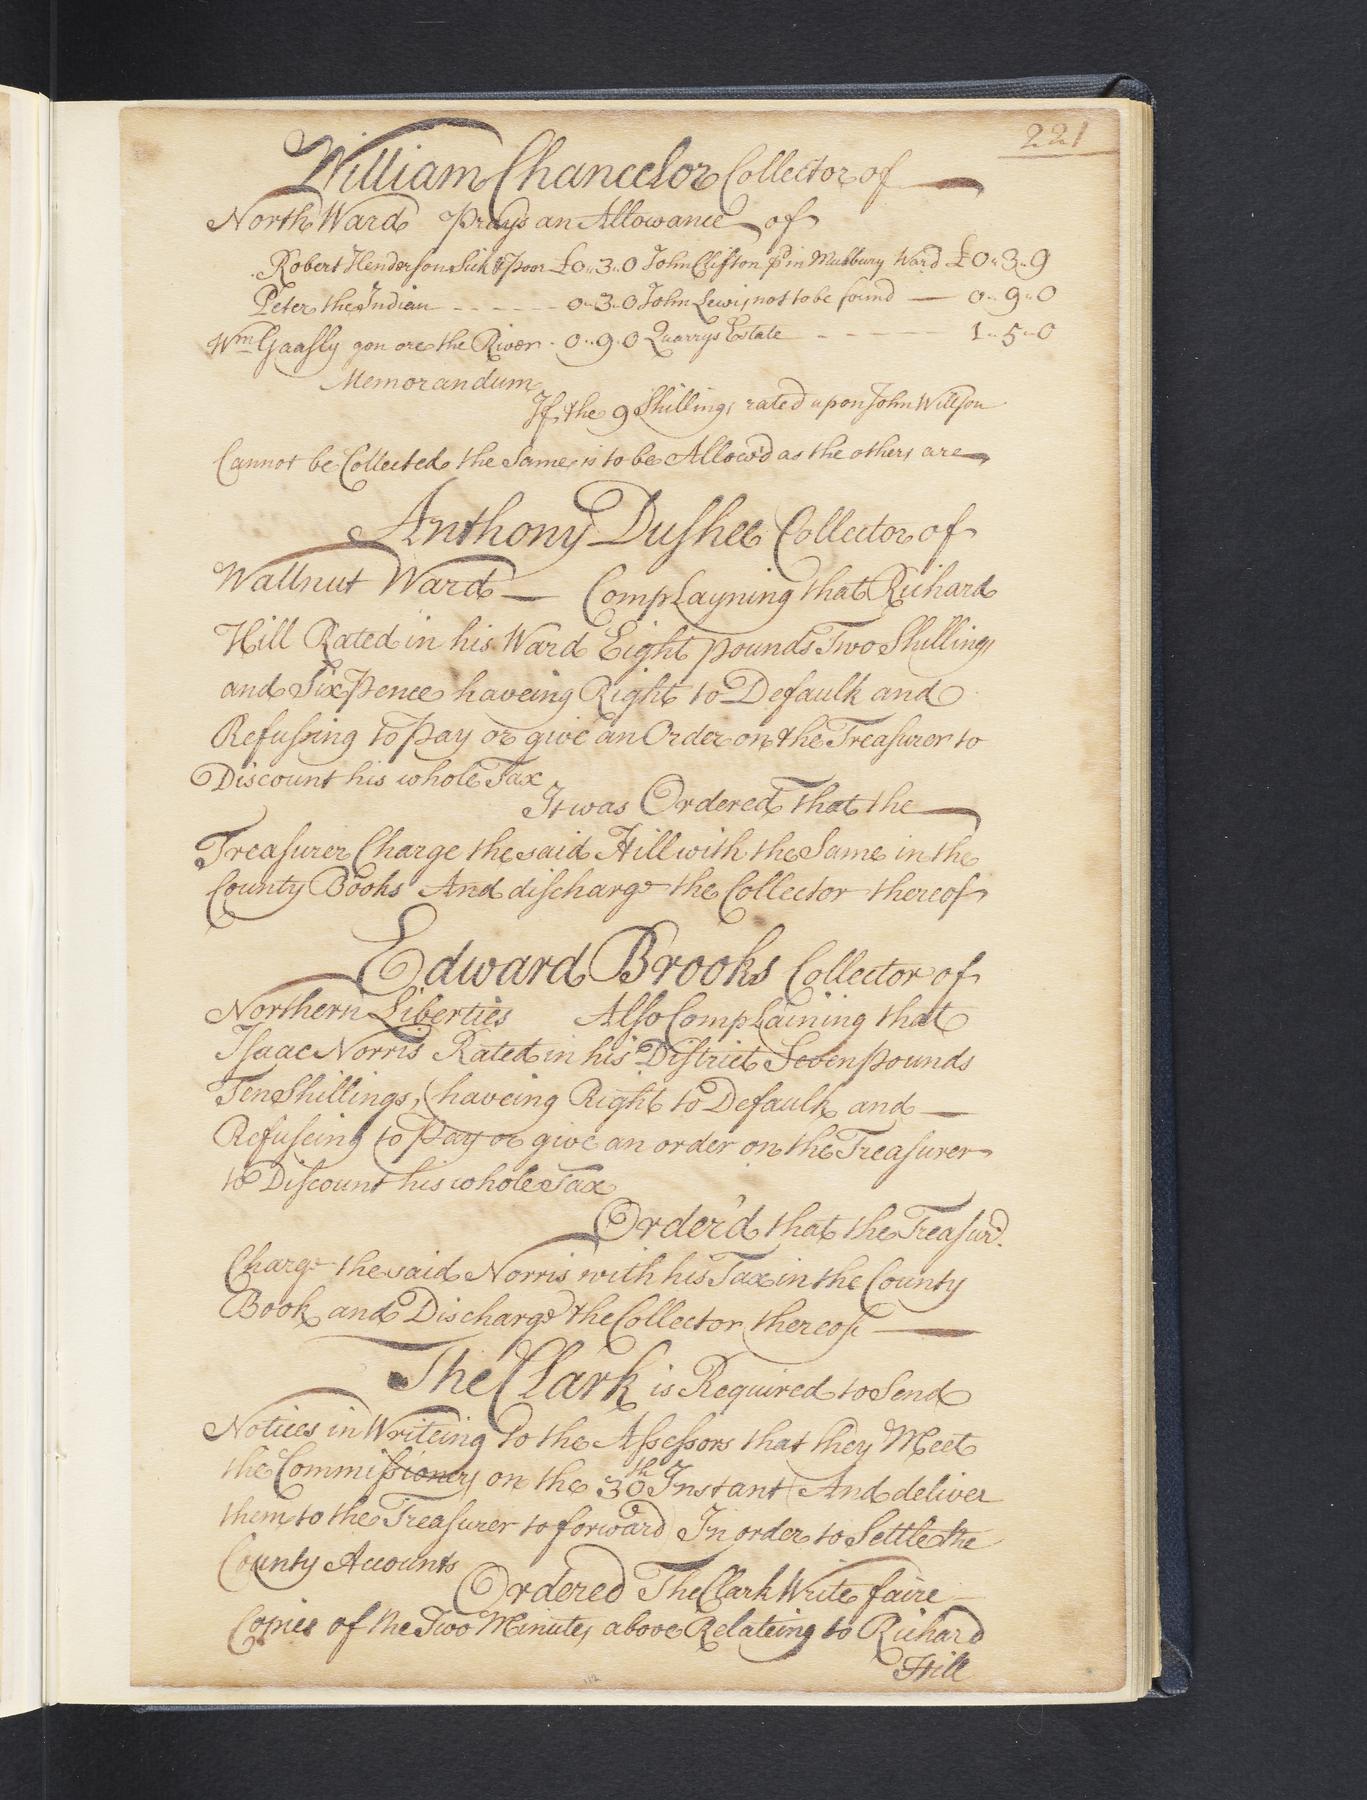 221
William Chancelor Collector of
North Ward Prays an Allowance of
Robert Henderson Sick & poor £0..3..0 John Clifton pd in Mulbury Ward £0..3..9
Peter the Indian - - - - - 0..3..0 John Lewis not to be found — 0..9..0
Wm Gaasly gon ore the River - 0..9..0 Quarrys Estate - - - - - 1..5..0
Memorandum
If the 9 Shillings rated upon John Willson
Cannot be Collected the Same is to be Allow'd as the others are
Anthony Dushee Collector of
Wallnut Ward — Complayning that Richard
Hill Rated in his Ward Eight pounds Two Shillings
and Six Pence haveing Right to Defaulk and
Refussing to pay or give an Order on the Treasurer to
Discount his whole Tax
It was Ordered That the
Treasurer Charge the said Hill with the Same in the
County Books And discharge the Collector thereof
Edward Brooks Collector of
Northern Liberties Also Complaining that
Isaac Norris Rated in his District Seven pounds
Ten Shillings, haveing Right to Defaulk and —
Refuseing to Pay or give an order on the Treasurer
to Discount his whole Tax
Order'd that the Treasurr.
Charge the said Norris with his Tax in the County
Book and Discharge the Collector thereof —
The Clark is Required to Send
Notices in Writeing to the Assessors that they Meet
the Commissioners on the 30th Instant And deliver
them to the Treasurer to forward In order to Settle the
County Accounts
Ordered The Clark Write faire
Copies of the Two Minutes above Relateing to Richard
Hill
112